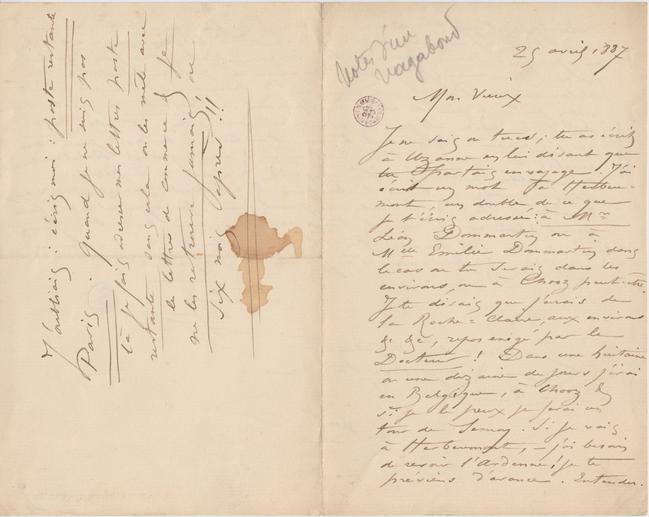 Notes d'un
vagabond
25 avril 1887
Mon Vieux
Je ne sais où tu es ; tu as écrit
à Uzanne en lui disant que
tu partais en voyage. J'ai
écrit un mot à Herbeu-
mont, un double de ce que
je t'écris adressé : à Mr
Léon Dommartin ou à
Mlle Emilie Dommartin dans
le cas où tu serais dans les
environs, ou à Chooz peut-être.
Je te disais que j'irais de
la Roche-Claire, aux environs
&c &c, repos exigé par le
Docteur ! Dans une huitaine
ou une dizaine de jours j'irai
en Belgique, à Chooz &
si je le peux je ferai un
tour de Semoy. Si je vais
à Herbeumont, – j'ai besoin
de revoir l'Ardenne ! je te
préviens d'avance. Entendu.
J'oubliais : écris moi : poste restante
Paris. Quand je ne suis pas
là je fais adresser mes lettres poste
restante sans cela on les mêle avec
les lettres de commerce & je
ne les retrouve jamais, ou
six mois après !!